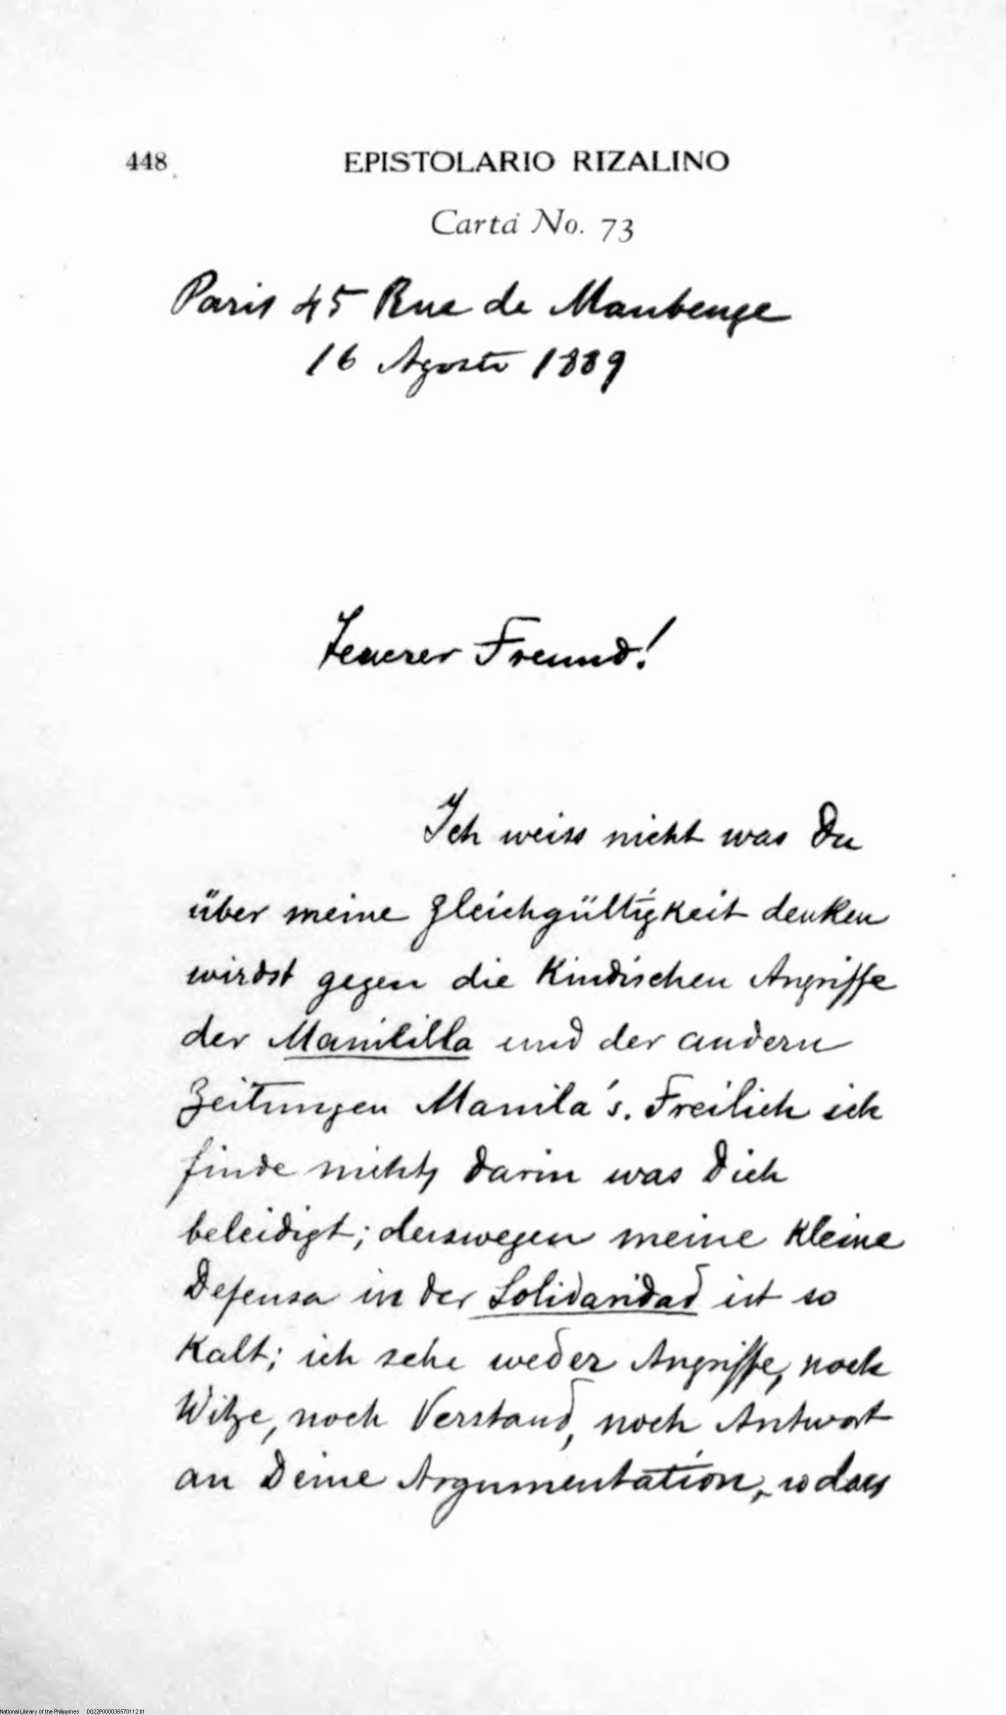 448 EPISTOLARIO RIZALINO
Carta No. 73
Paris 45 Rue de Maubeuge
16 Agosto 1889
Teuerer Freund!
Ich weiss nicht was Du
über meine Gleichgültigkeit denken
wirdst gegen die Kindischen Angriffe
der Manililla und der andern
Zeitungen Manila's. Freilich ich
finde nichts darin was Dich
beleidigt; derswegen meine Kleine
Defensa in der Solidaridad ist so
Kalt; ich sehe weder Angriffe, noch
Witze, noch Verstand, noch Antwort
an Deine Argumentation, so dass
National Library of the Philippines D022P000036570112.tif